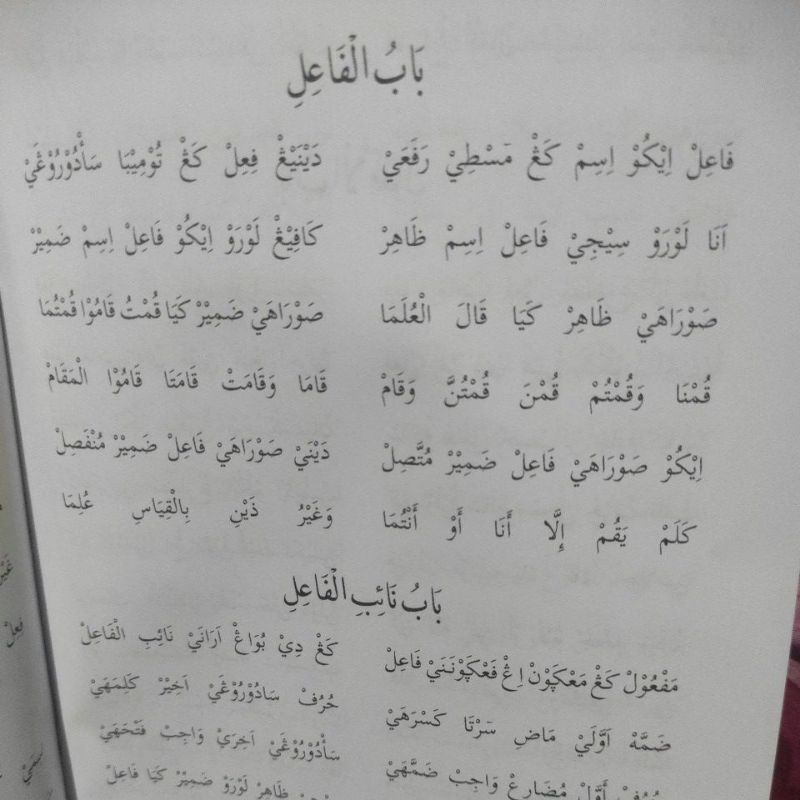 بَابُ الْفَاعِلِ
فَاعِلْ اِيْكُوْ اِسِمْ كَڠْ مَسْطِيْ رَفَعَيْ دَيْنَيْڠْ فِعِلْ كَڠْ تُوْمِيْبَا سَأْدُوْرُوْڠَيْ
اَنَا لَوْرَوْ سِيْجِيْ فَاعِلْ اِسِمْ ظَاهِرْ كَافِيْڠْ لَوْرَوْ اِيْكُوْ فَاعِلْ اِسِمْ ضَمِيْرْ
صَوْرَاهَيْ ظَاهِرْ كَيَا قَالَ الْعُلَمَا صَوْرَاهَيْ ضَمِيْرْ كَيَا قُمْتُ قَامُوْا قُمْتُمَا
قُمْنَا وَقُمْتُمْ قُمْنَ قُمْتُنَّ وَقَامْ قَامَا وَقَامَتْ قَامَتَا قَامُوْا الْمَقَامْ
اِيْكُوْ صَوْرَاهَيْ فَاعِلْ ضَمِيْرْ مُتَّصِلْ دَيْنَيْ صَوْرَاهَيْ فَاعِلْ ضَمِيْرْ مُنْفَصِلْ
كَلَمْ يَقُمْ إِلَّا أَنَا أَوْ أَنْتُمَا وَغَيْرُ ذَيْنِ بِالْقِيَاسِ عُلِمَا
بَابُ نَائِبِ الْفَاعِلِ
مَفْعُوْلْ كَڠْ مَعْكَوْنْ اِڠْ فَعْكَوْنَنَيْ فَاعِلْ كَڠْ دِيْ بُوَاڠْ اَرَانَيْ نَائِبِ الْفَاعِلْ
ضَمَّهْ اَوَّلَيْ مَاضِ سَرْتَا كَسْرَهَيْ حُرُفْ سَادُوْرُوْڠَيْ اَخِيْرْ كَلِمَهَيْ
أَوَّلْ مُضَارِعْ وَاجِبْ ضَمَّهَيْ سَأْدُوْرُوْڠَيْ اَخِرَيْ وَاجِبْ فَتْحَهَيْ
ظَاهِرْ لَوْرَوْ ضَمِيْرْ كَيَا فَاعِلْ